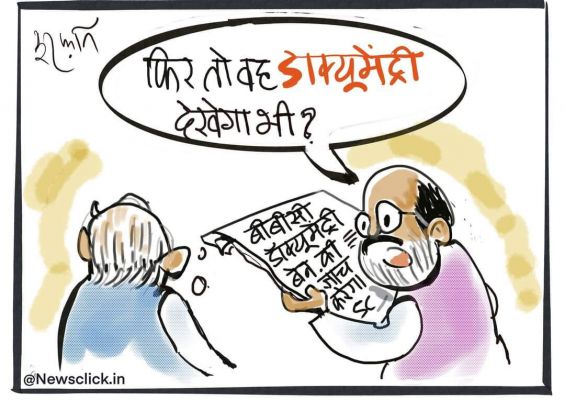 इरफ़ान
फिर तो वह डाक्यूमेंट्री
देखेगा भी?
बीबीसी
डॉक्यूमेंट्री
बेन की
जांच
करेगा
SC
@Newsclick.in